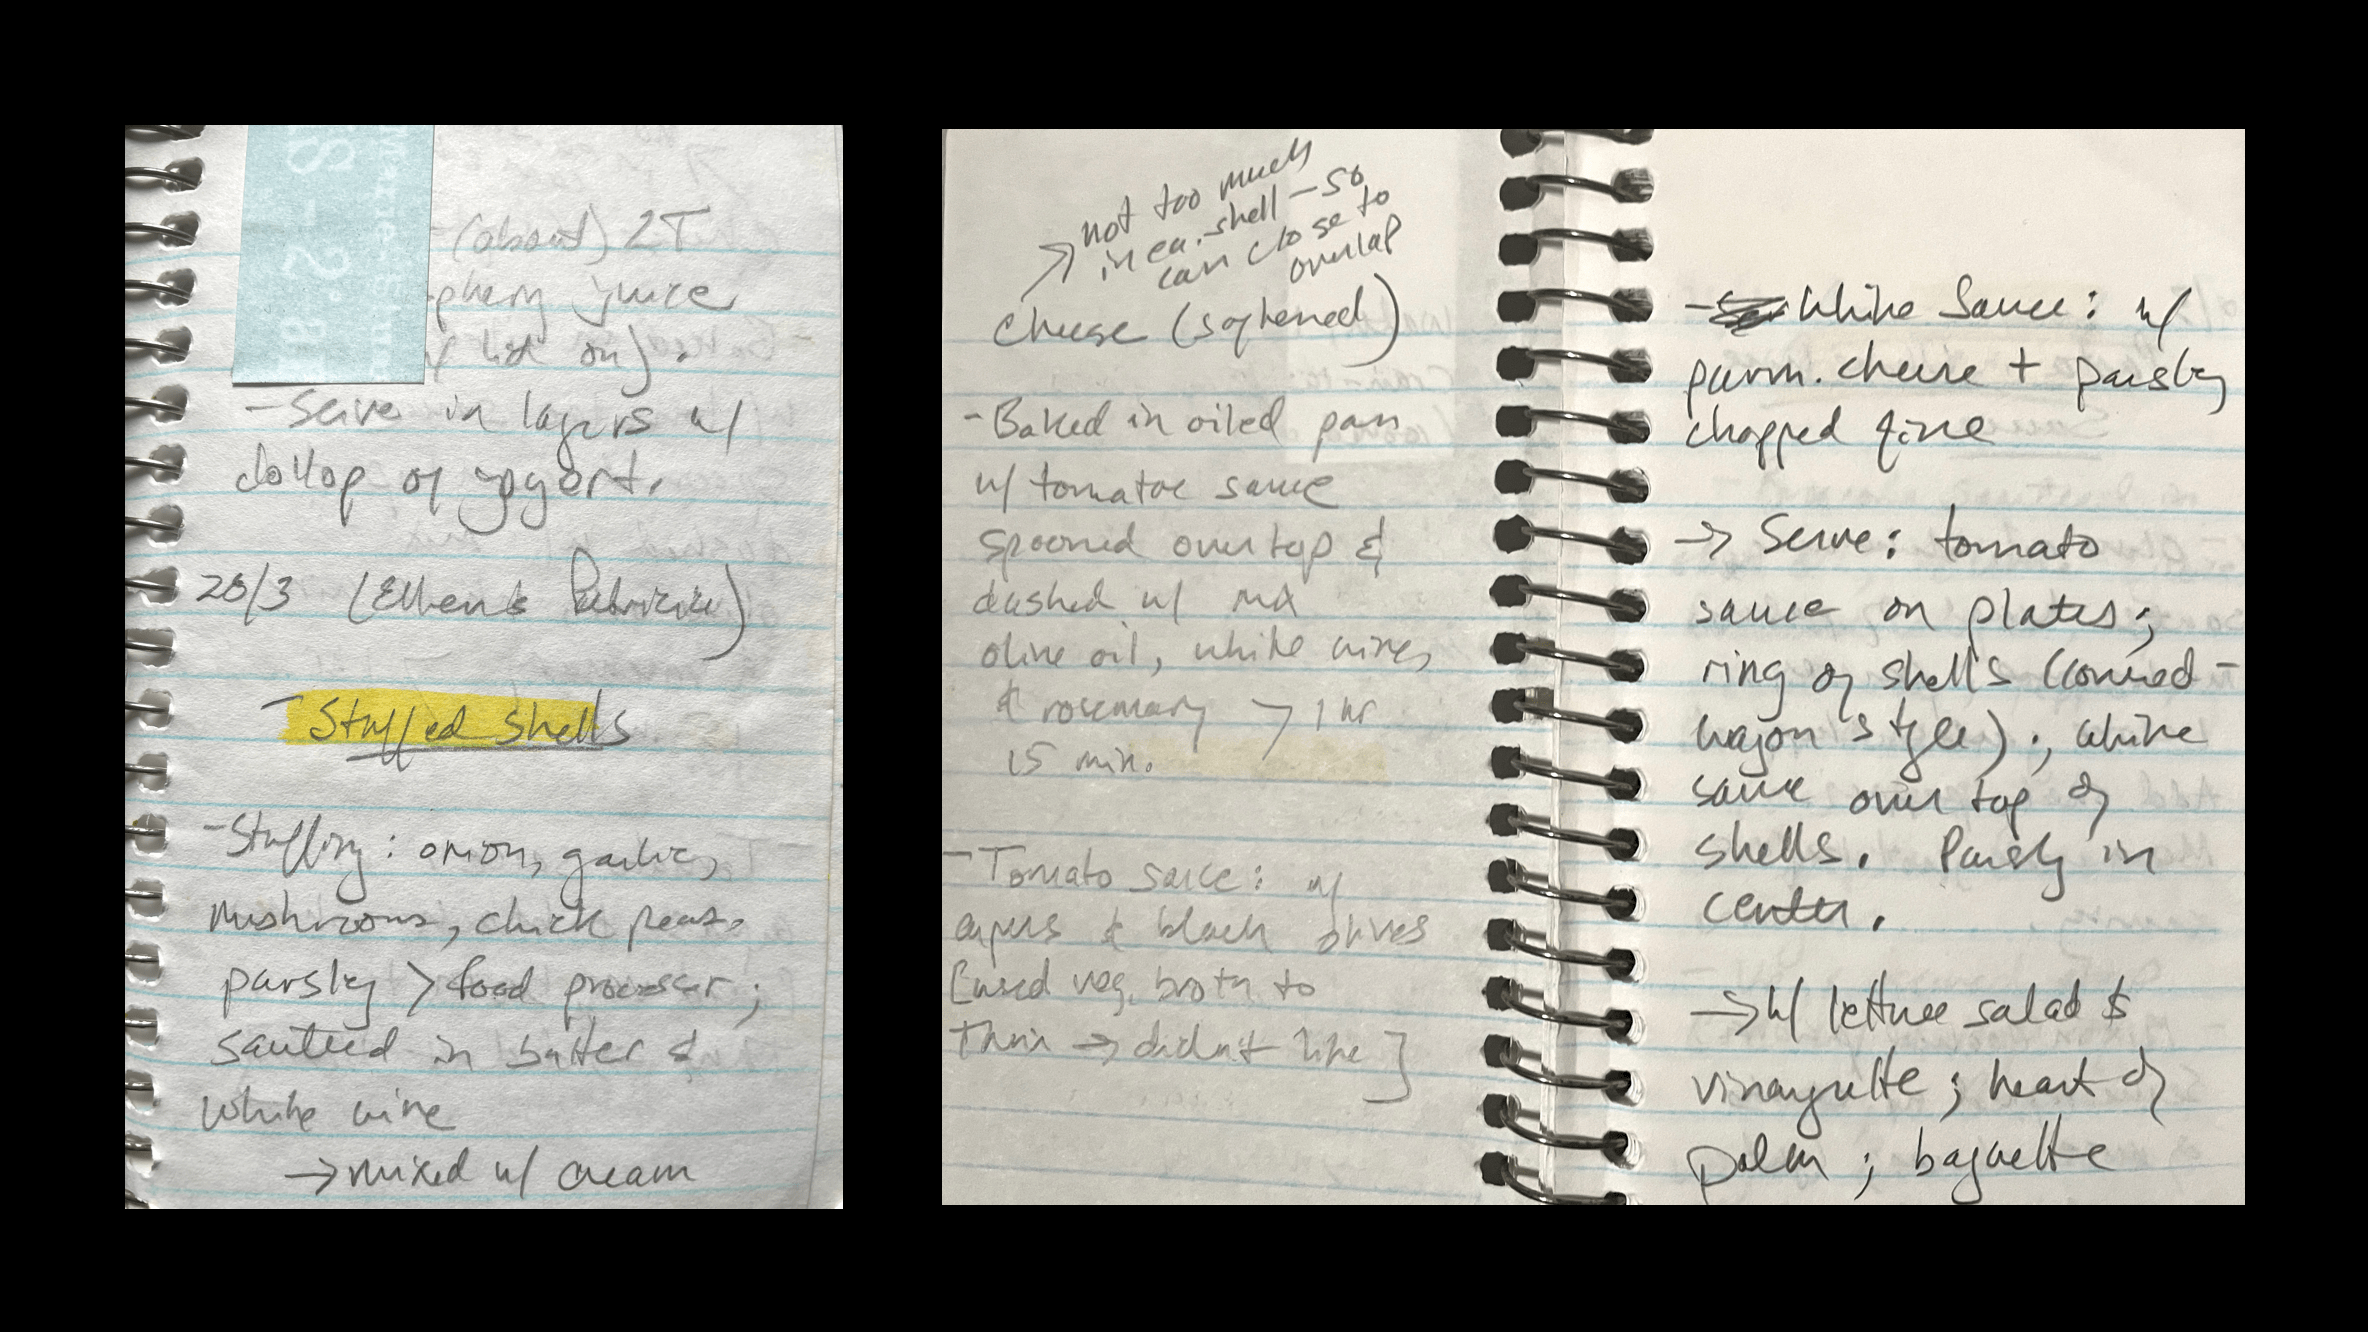 - (about) 2T
juice
w/ lid on).
- Serve in layers w/
dollop of yogert.
28/3 (Ellen &
- Stuffed Shells
- Stuffing: onion, garlic,
mushrooms, chick peas,
parsley > food processor;
sauteed in butter &
white wine
→ mixed w/ cream
→ not too much
in ea. shell - so
can close to
overlap
cheese (softened)
- Baked in oiled pan
w/ tomatoe sauce
spooned over top &
dashed w/ mix
olive oil, white wine,
& rosemary > 1 hr
15 min.
- Tomato sauce: w/
capers & black olives
[used veg. broth to
thin → didn't like]
- White Sauce: w/
parm. cheese + parsley
chopped fine
→ Serve: tomato
sauce on plates;
ring of shells (covered-
wagon style); white
sauce over top of
shells. Parsley in
center.
→ w/ lettuce salad &
vinaigrette; heart of
palm; baguette